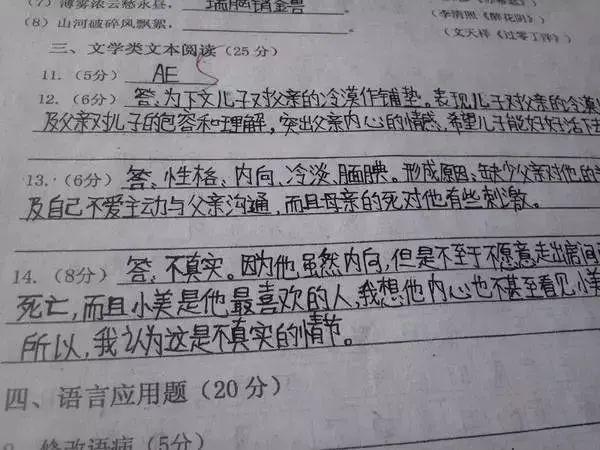 (7) 薄雾浓云愁永昼,瑞脑销金兽
(8) 山河破碎风飘絮,
(李清照《醉花阴》)
(文天祥《过零丁洋》)
三、文学类文本阅读(25分)
11.(5分) AE
12.(6分) 答:为下文儿子对父亲的冷漠作铺垫。表现儿子对父亲的冷漠以
及父亲对儿子的包容和理解,突出父亲内心的情感,希望儿子能好好活下去
13.(6分) 答:性格、内向、冷淡、腼腆。形成原因:缺少父亲对他的
及自己不爱主动与父亲沟通,而且母亲的死对他有些刺激。
14.(8分) 答:不真实。因为他虽然内向,但是不至于不愿意走出房间
死亡,而且小美是他最喜欢的人,我想他内心也不甚至看见小美
所以,我认为这是不真实的情节。
四、语言应用题(20分)
修改语病(5分)